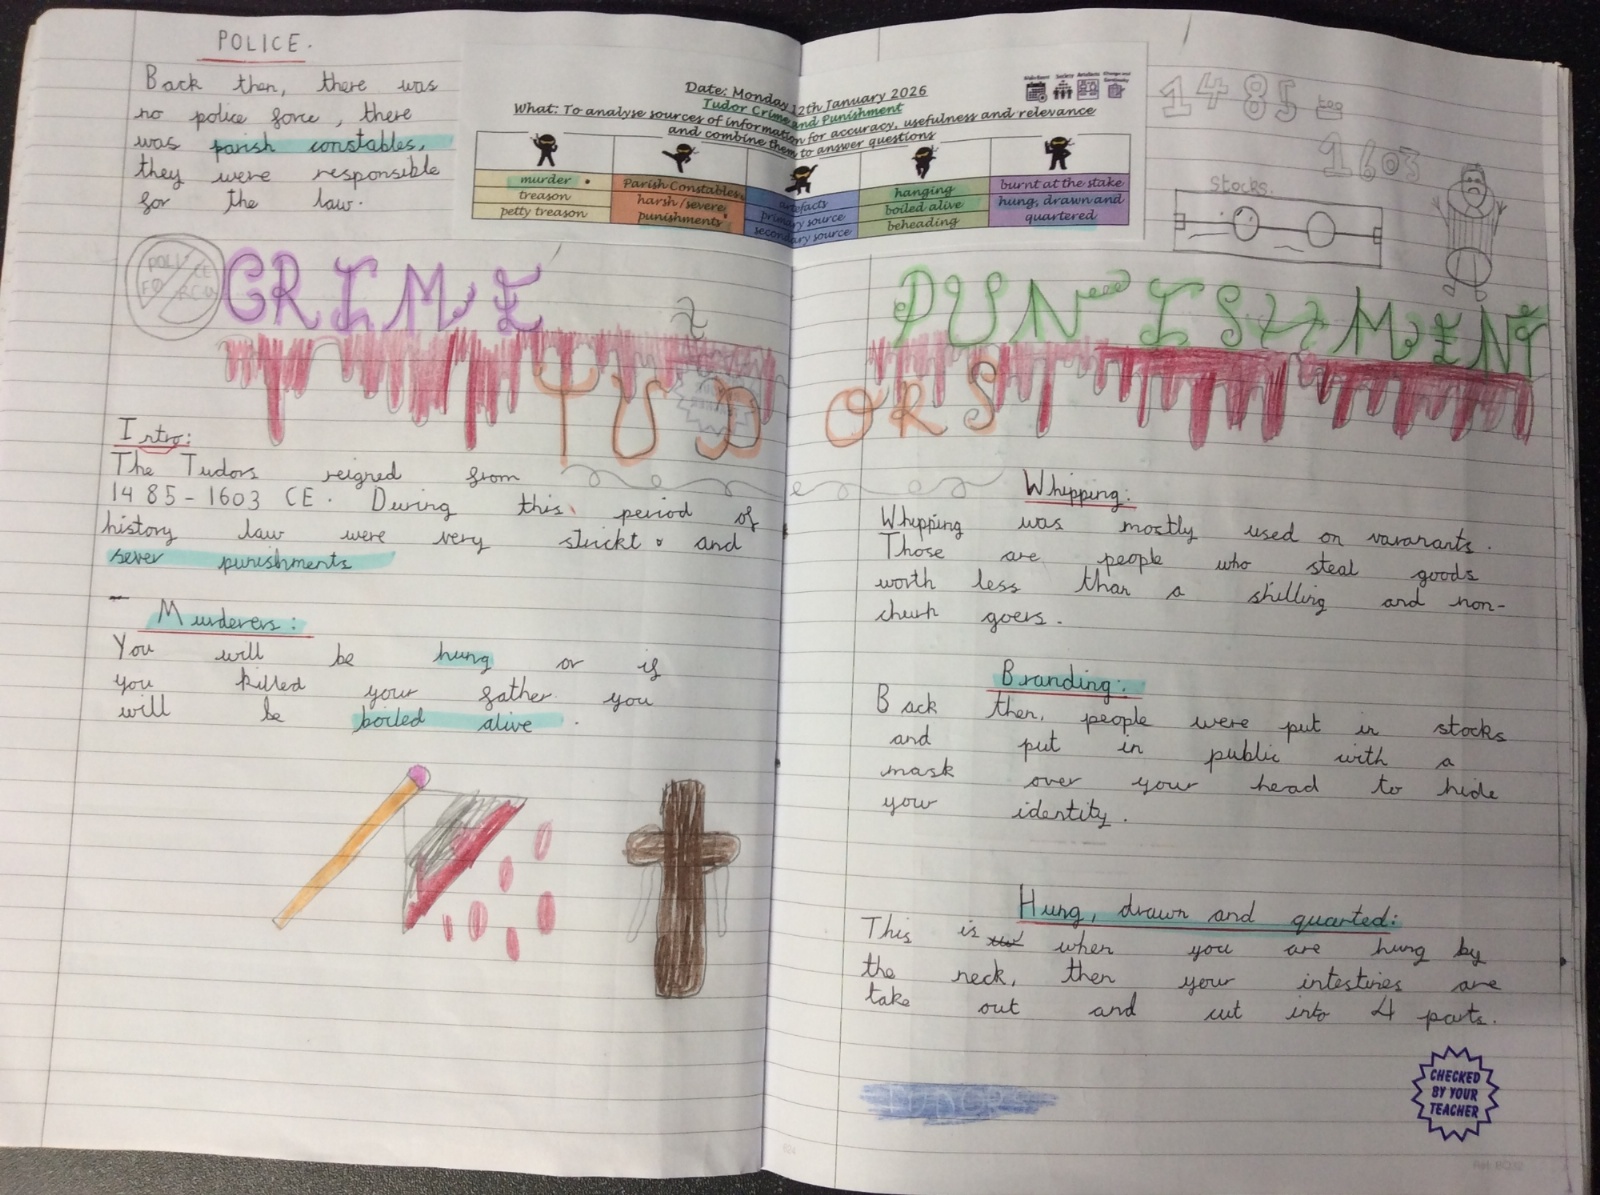 POLICE.
Back then, there was
no police force, there
was parish constables,
they were responsible
for the law.
Date: Monday 12th January 2026
Tudor Crime and Punishment
What: To analyse sources of information for accuracy, usefulness and relevance
and combine them to answer questions
murder
treason
petty treason
Parish Constables
harsh/severe
punishments
artefacts
primary source
secondary source
hanging
boiled alive
beheading
burnt at the stake
hung, drawn and
quartered
1485 too
1603
stocks.
CRIME
PUNISHMENT
TUDORS
Intro:
The Tudors reigned from
1485-1603 CE. During this period of
history law were very strickt and
sever punishments
Murderers:
You will be hung or if
you killed your father you
will be boiled alive.
Whipping:
Whipping was mostly used on vararants.
Those are people who steal goods
worth less than a shilling and non-
churh goers.
Branding:
Back then, people were put in stocks
and put in public with a
mask over your head to hide
your identity.
Hung, drawn and quarted:
This is when you are hung by
the neck, then your intestines are
take out and cut into 4 parts.
CHECKED
BY YOUR
TEACHER